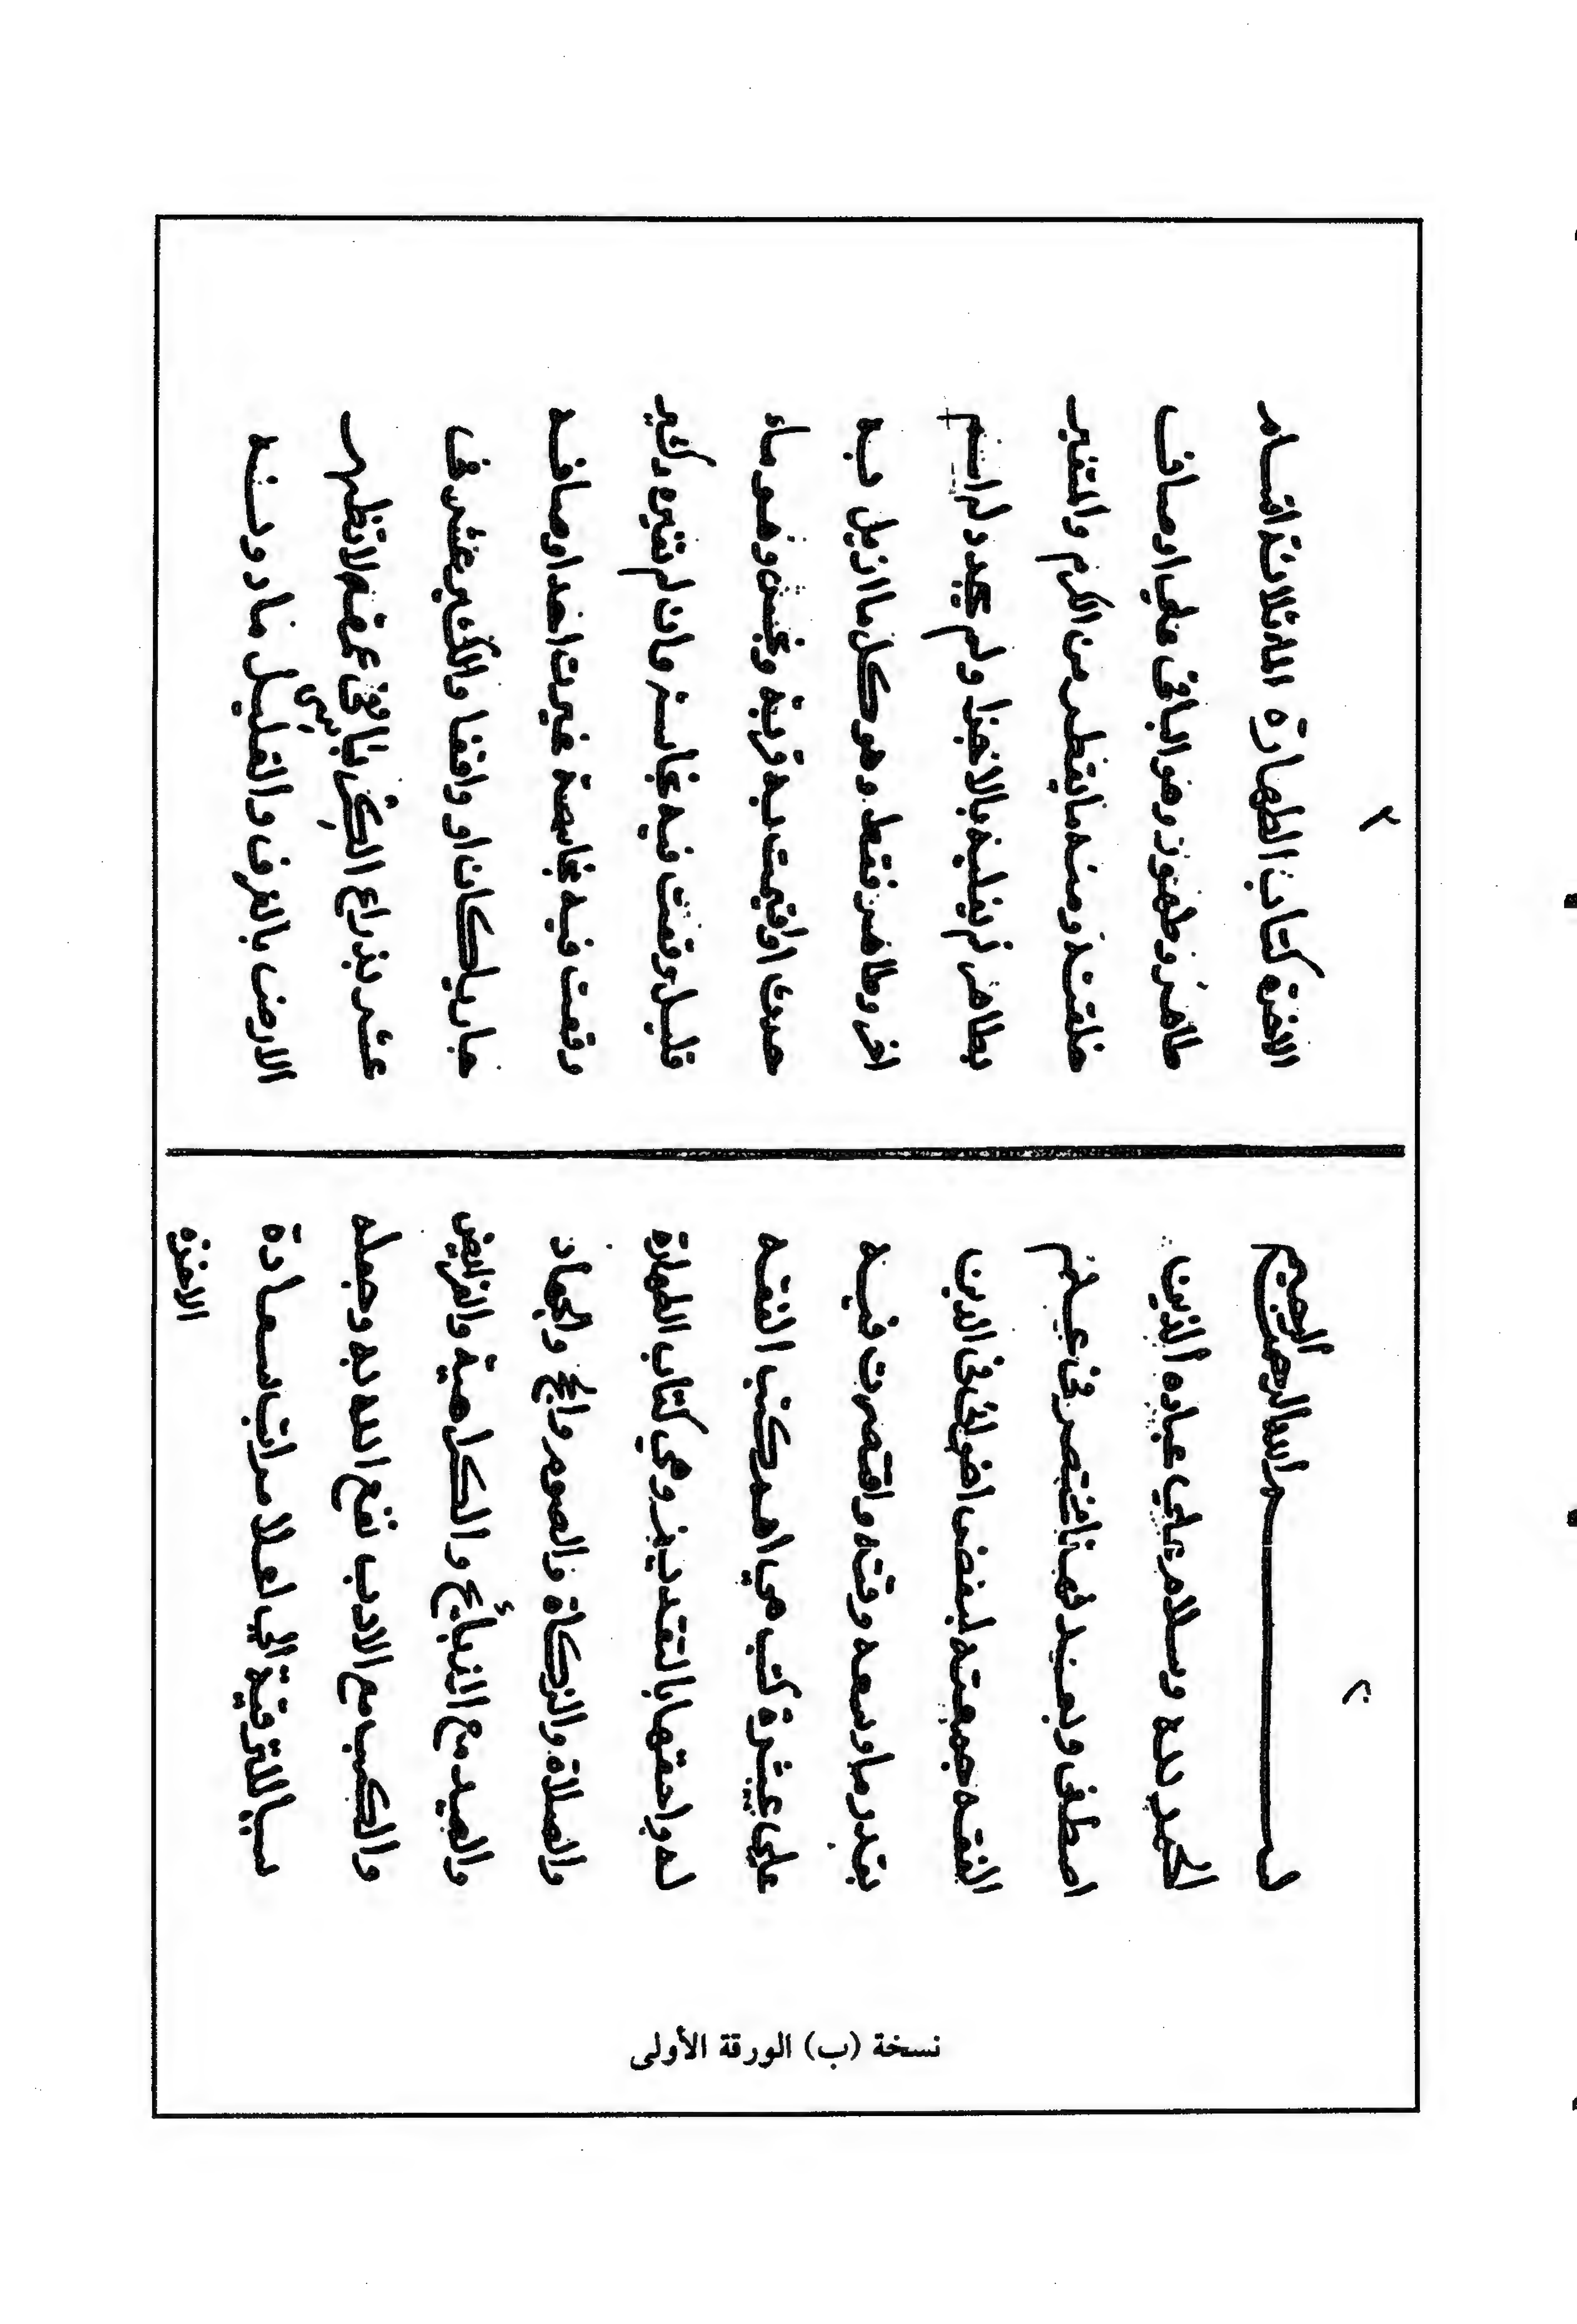 ٢
بسم الله الرحمن الرحيم
الحمد لله وسلام علي عباده الذين
اصطفى وبعد فهذا مختصر في علم
الفقه جمعته لبعض اخواني في الدين
بقدر ما وسعه وقته واقتصرت فيه
علي عشرة كتب هي اهم كتب الفقه
له واحقها بالتقديم وهي كتاب الطهارة
والصلاة والزكاة والصوم والحج والجهاد
والصيد مع الذبائح والكراهية والفرايض
والكسب مع الادب نفع الله به وجعله
سببا للترقية الي اعلا مراتب سعادة
الاخرة
٢
الاخرة كتاب الطهارة الماء ثلاثة اقسام
طاهر وطهور وهو الباقي علي اوصاف
خلقته ومنه ما يقطر من الكرم والمتغير
بطاهر لم يغلبه بالاجزا ولم يجدد له اسم
اخر وطاهر فقط وهو كل ما ازيل به
حدث او اقيمت به قربة ونجس وهو ماء
قليل وقعت فيه نجاسة وان لم تغيره وكثير
وقعت فيه نجاسة غيرت احد اوصافه
جاريا كان او واقفا والكثير عشر في
عشر بذراع الكرباس في عمق لا تظهر
الارض بالغرف والقليل ما دونه
نسخة (ب) الورقة الأولى